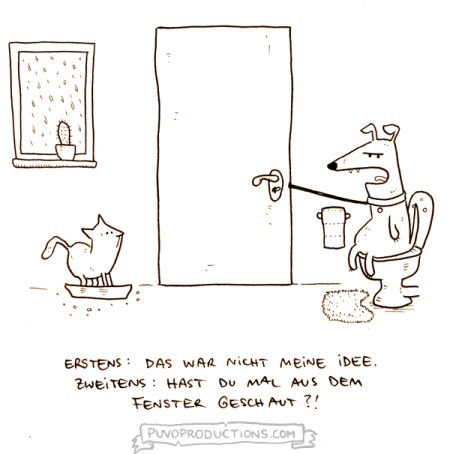 ERSTENS: DAS WAR NICHT MEINE IDEE.
ZWEITENS: HAST DU MAL AUS DEM
FENSTER GESCHAUT?!
PUVOPRODUCTIONS.COM